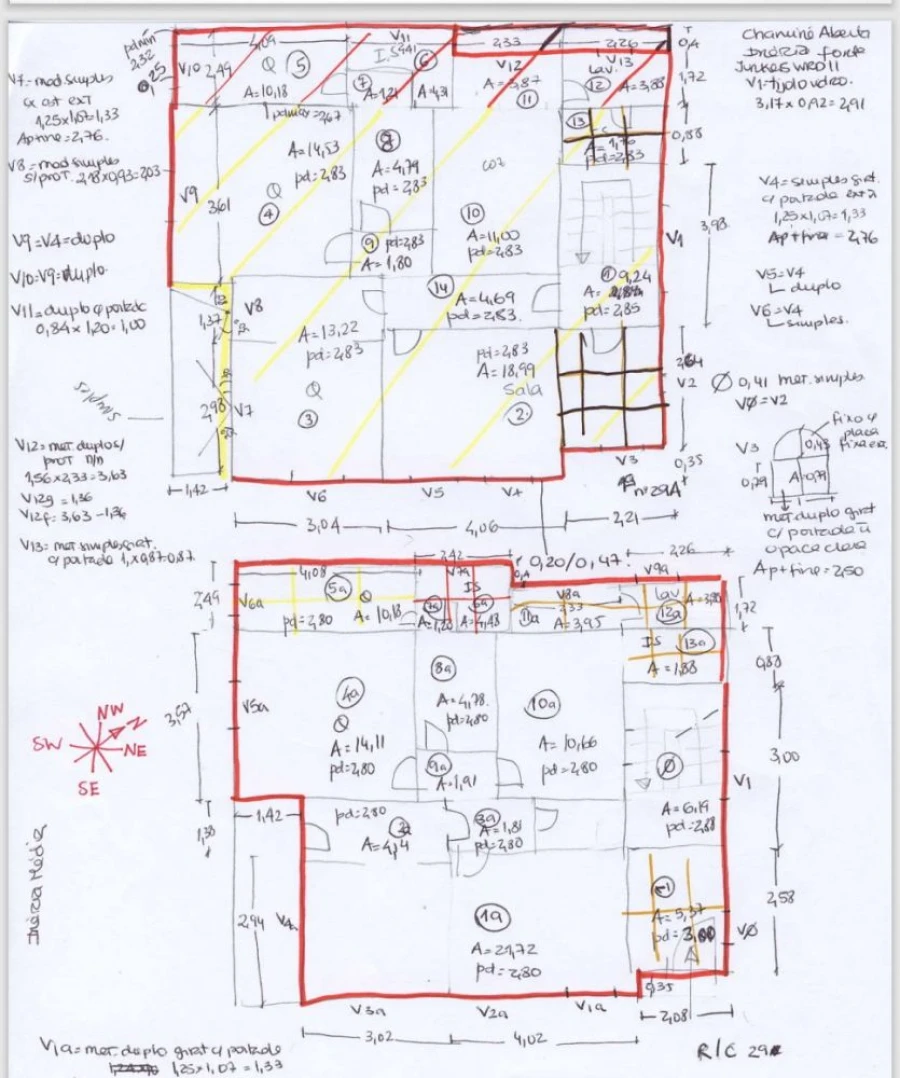 pdmin
2,32
0,25
V7= mod simples
c/ est ext
1,25x1,07=1,33
Ap+fine=2,76.
V8= mod simples
s/prot. 2,18x0,93=2,03
V9=V4=duplo
V10=V9=duplo
V11=duplo c/portadc
0,84x1,20=1,00
V12=met. duplo s/
prot n/n
1,56x2,33=3,63
V12g=1,36
V12f=3,63-1,36
V13= met. simples girat.
c/portada 1,x0,87=0,87
4,09
V10
2,49
Q
5
A=10,18
V11
I.S
7
6
A=1,21
A=4,31
2,33
2,26
0,4
V12
A=3,87
11
V13
lav.
12
A=3,88
1,72
pdmax=2,67
13
A=1,76
pd=2,83
0,88
A=14,53
pd=2,83
V9
3,61
Q
4
8
A=4,79
pd=2,83
coz
10
A=11,00
pd=2,83
9
pd=2,83
A=1,80
3,98
V1
1
9,24
pd=2,85
14
A=4,69
pd=2,83.
1,37
V8
A=13,22
pd=2,83
Q
3
pd=2,83
A=18,99
Sala
2
2,64
V2
2,98
V7
1,42
V6
V5
V4
V3
0,35
nº29A
3,04
4,06
2,21
Chaminé Aberta
Inércia forte
Junkers WRD11
V1=tijolo vidro.
3,17x0,92=2,91
V4=simples girat.
c/ portada ext.
1,25x1,07=1,33
Ap+fine=2,76
V5=V4
duplo
V6=V4
simples.
Ø 0,41 met. simples
VØ=V2
V3
fixo c/
placa
0,43
0,79
A
0,79
met. duplo girat
c/ portada
opaca clara
Ap+fine=2,50
2,42
0,20/0,47.
2,26
4,08
V7a
0,4
V9a
2,49
V6a
5a
Q
pd=2,80
A=10,18
IS
7a
6a
A=1,20
A=4,48
V8a
2,33
11a
A=3,95
lav
12a
1,72
IS
13a
A=1,88
0,88
3,57
V5a
4a
Q
A=14,11
pd=2,80
8a
A=4,78
pd=2,80
10a
A=10,66
pd=2,80
9a
A=1,91
Ø
A=6,19
pd=2,88
3,00
V1
1,42
1,38
pd=2,80
2a
A=4,14
3a
A=1,81
pd=2,80
2,94
V4a
1a
A=21,72
pd=2,80
-1
A=5,37
pd=3,00
2,58
VØ
V3a
V2a
V1a
0,35
2,08
3,02
4,02
R/C 29
NW
N
SW
NE
SE
Inércia Média
V1a=met. duplo girat c/ portada
1,25x1,07=1,33